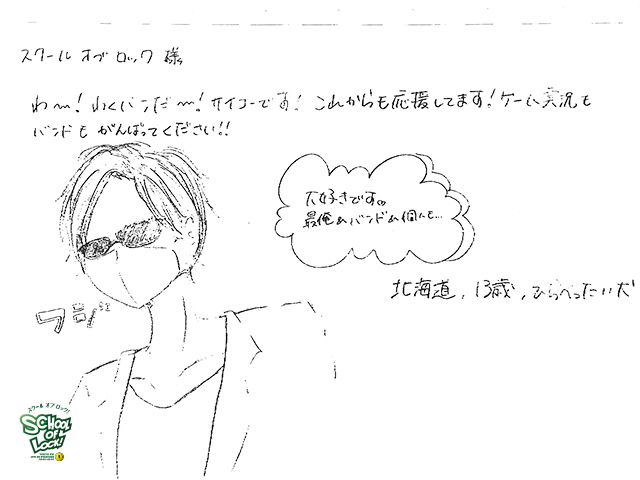 スクール オブ ロック 様
わ〜! わくバンだ〜! サイコーです! これからも応援してます! ゲーム実況も
バンドも がんばってください!!
大好きです。
最俺もバンドも個人も...
北海道, 13歳, ひらべったい犬
フジ
スクール オブ ロック!
SCHOOL
OF
LOCK!